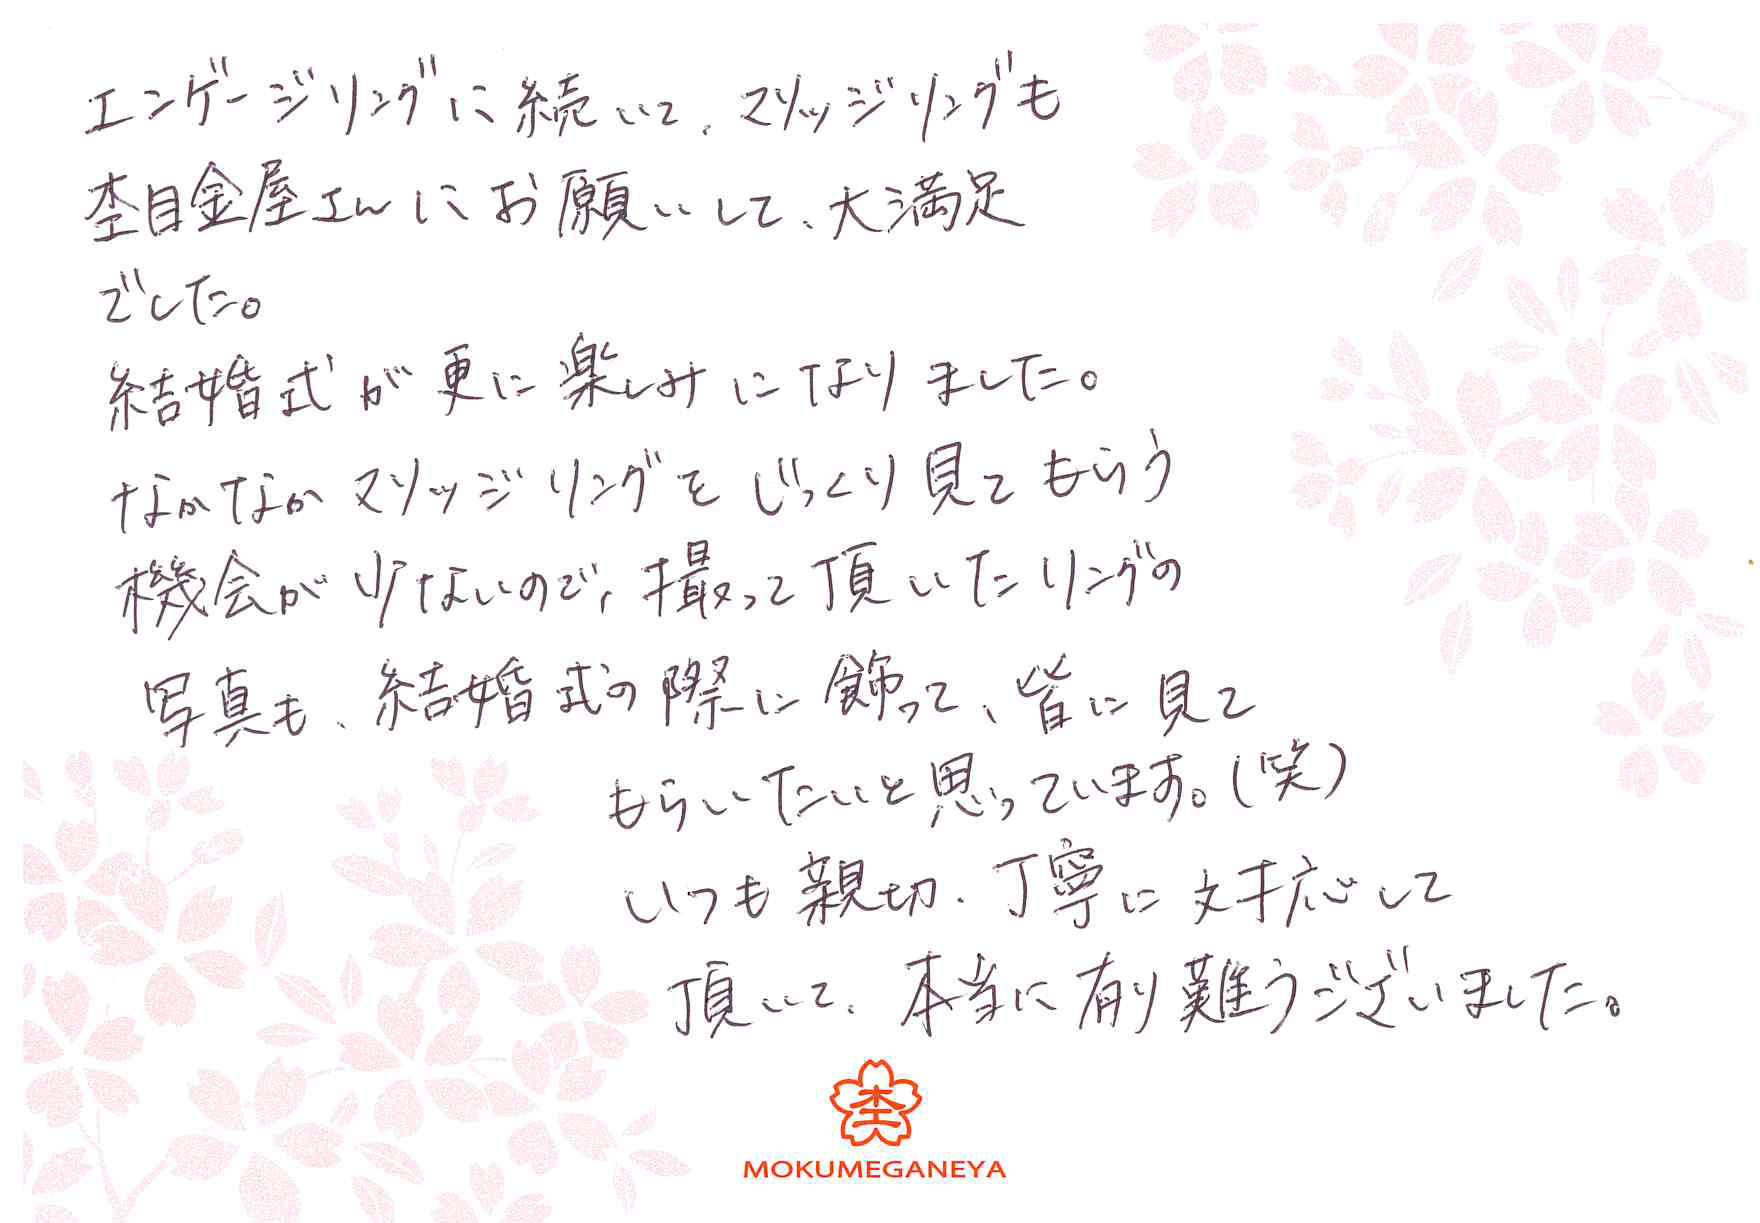 エンゲージリングに続いて、マリッジリングも
杢目金屋さんにお願いして、大満足
でした。
結婚式が更に楽しみになりました。
なかなかマリッジリングをじっくり見てもらう
機会が少ないので、撮って頂いたリングの
写真も、結婚式の際に飾って、皆に見て
もらいたいと思っています。(笑)
いつも親切、丁寧に対応して
頂いて、本当に有り難うございました。
杢
MOKUMEGANEYA